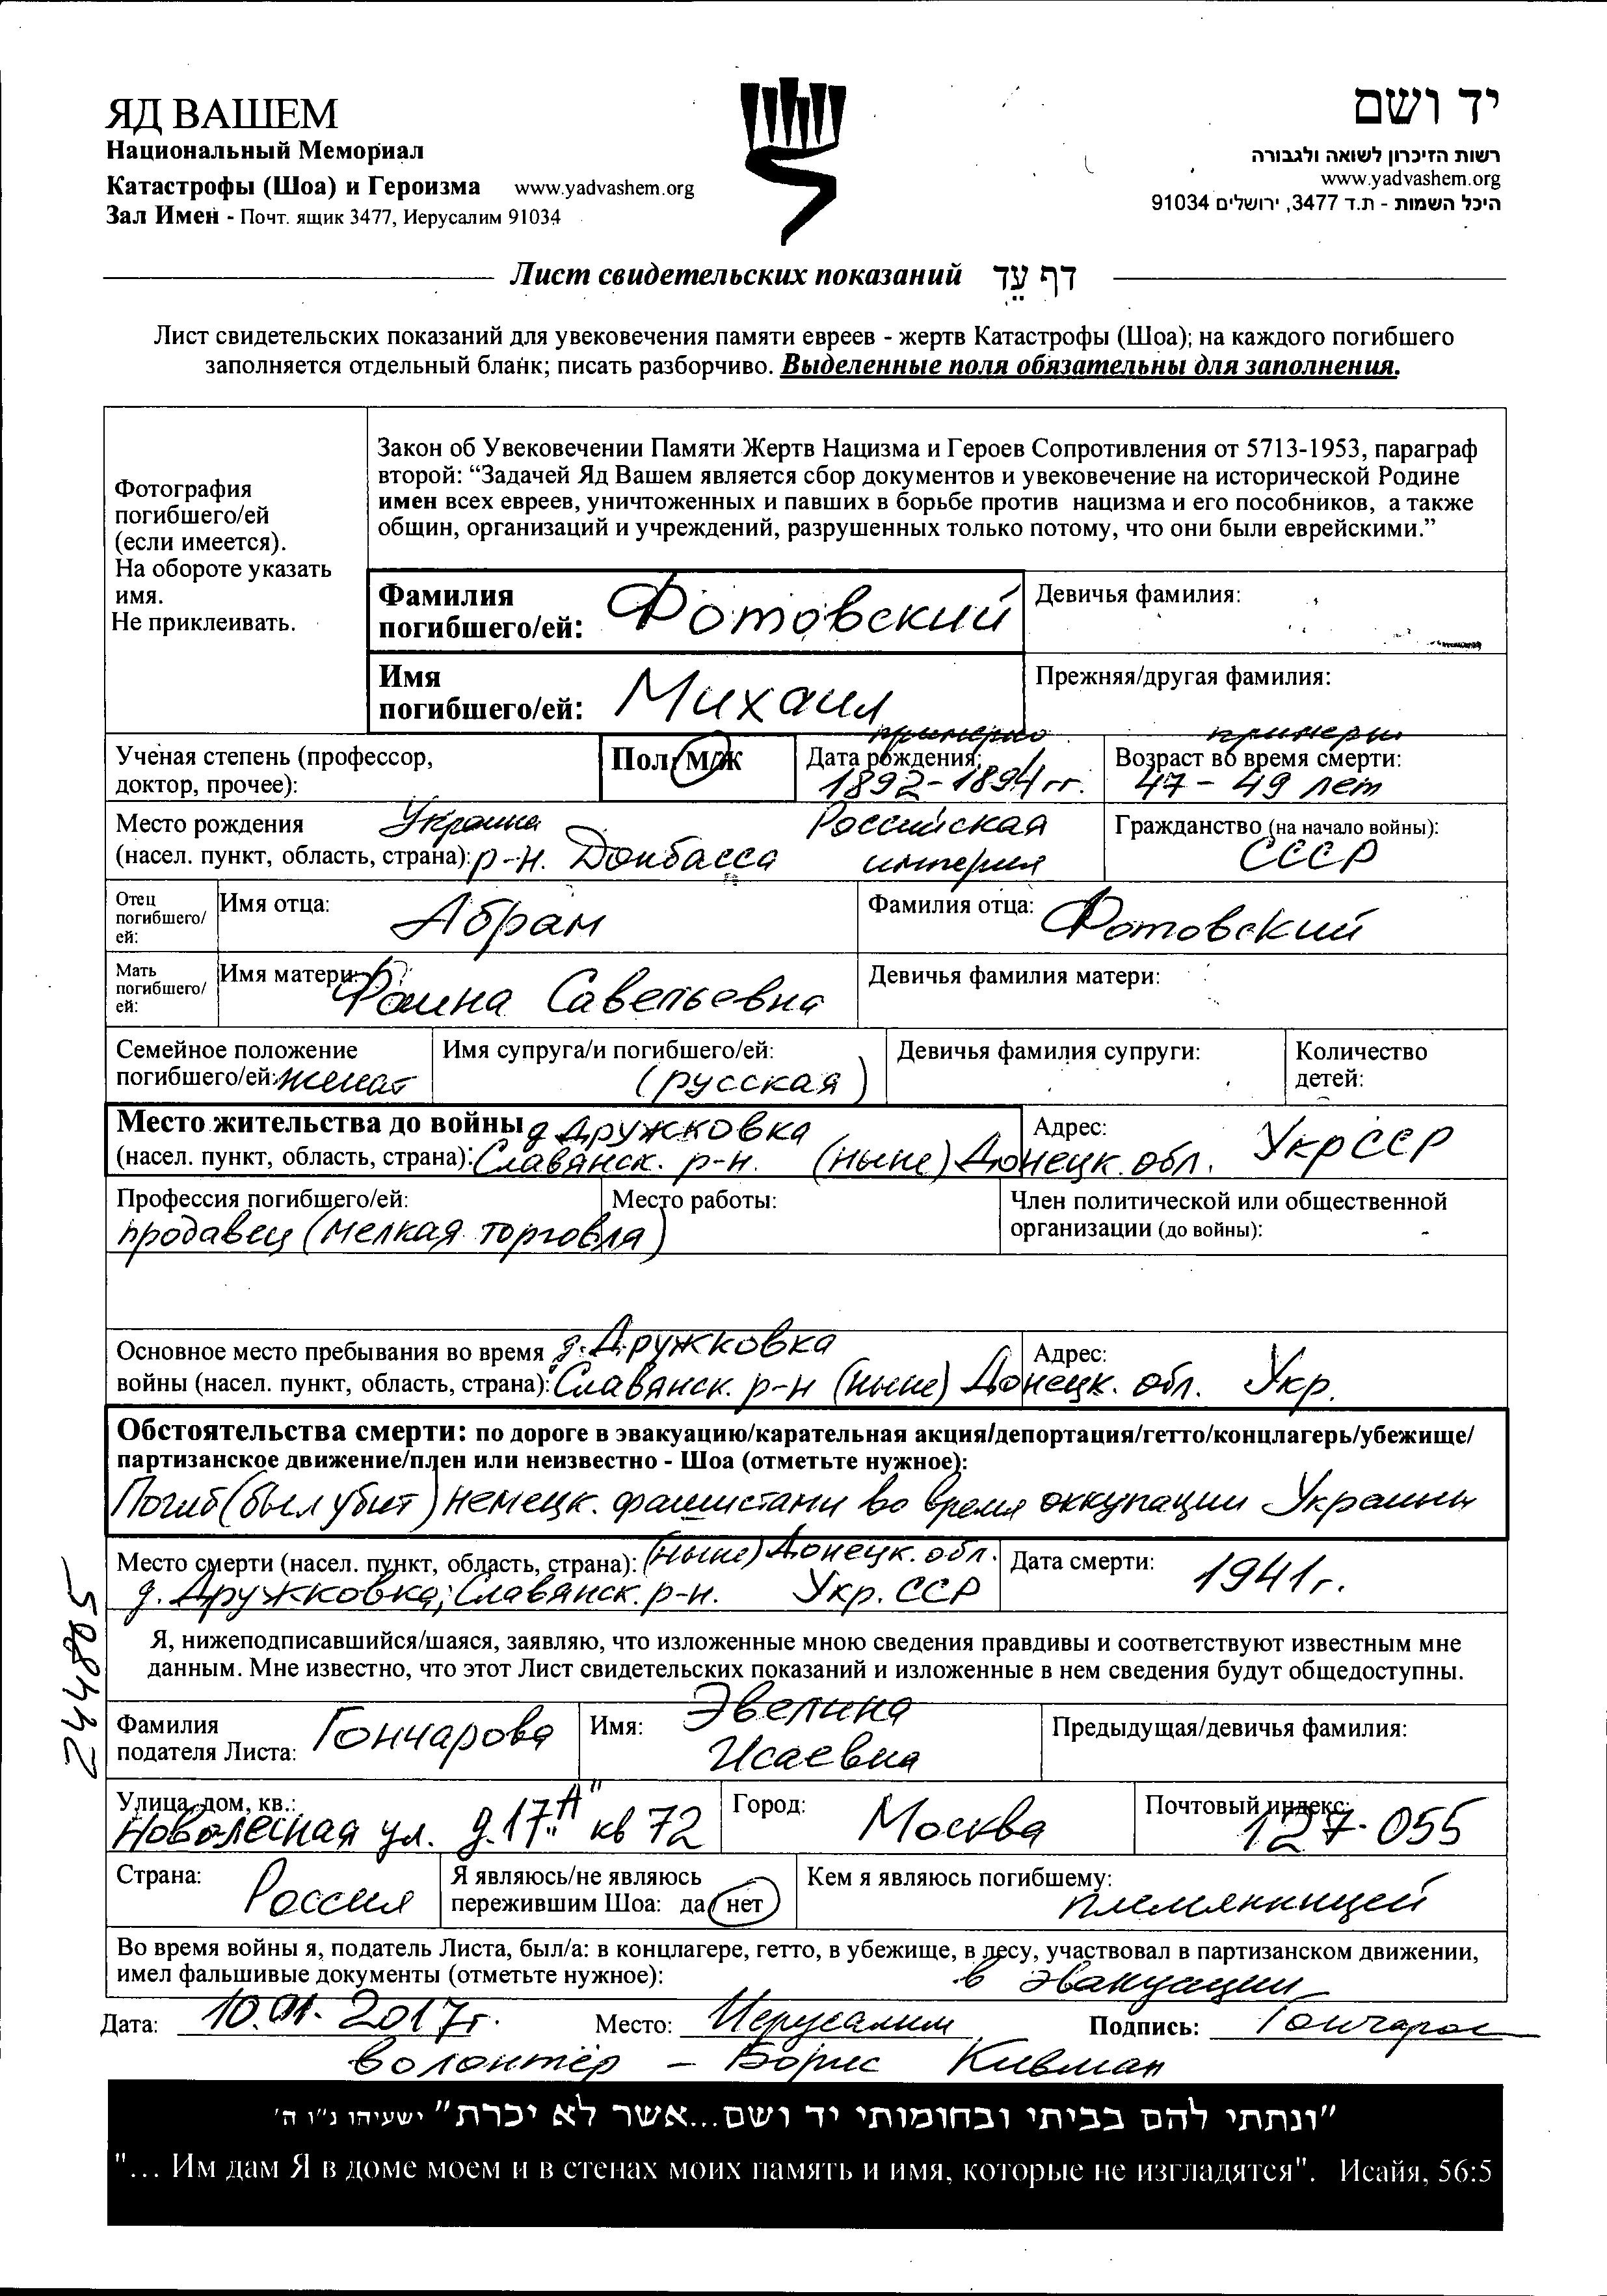 ЯД ВАШЕМ
Национальный Мемориал
Катастрофы (Шоа) и Героизма www.yadvashem.org
Зал Имен - Почт. ящик 3477, Иерусалим 91034
יד ושם
רשות הזיכרון לשואה ולגבורה
www.yadvashem.org
היכל השמות - ת.ד 3477, ירושלים 91034
Лист свидетельских показаний דף עֵד
Лист свидетельских показаний для увековечения памяти евреев - жертв Катастрофы (Шоа); на каждого погибшего
заполняется отдельный бланк; писать разборчиво. Выделенные поля обязательны для заполнения.
Фотография
погибшего/ей
(если имеется).
На обороте указать
имя.
Не приклеивать.
Закон об Увековечении Памяти Жертв Нацизма и Героев Сопротивления от 5713-1953, параграф
второй: “Задачей Яд Вашем является сбор документов и увековечение на исторической Родине
имен всех евреев, уничтоженных и павших в борьбе против нацизма и его пособников, а также
общин, организаций и учреждений, разрушенных только потому, что они были еврейскими.”
Фамилия
погибшего/ей: Фотовский
Девичья фамилия:
Имя
погибшего/ей: Михаил
Прежняя/другая фамилия:
Ученая степень (профессор,
доктор, прочее):
Пол: М/Ж
примерно
Дата рождения:
1892-1894 гг.
примерн
Возраст во время смерти:
47 - 49 лет
Место рождения Украина Российская
(насел. пункт, область, страна): р-н. Донбасса империя
Гражданство (на начало войны):
СССР
Отец
погибшего/
ей:
Имя отца: Абрам
Фамилия отца: Фотовский
Мать
погибшего/
ей:
Имя матери: Фаина Савельевна
Девичья фамилия матери:
Семейное положение
погибшего/ей: женат
Имя супруга/и погибшего/ей:
(русская)
Девичья фамилия супруги:
Количество
детей:
Место жительства до войны д Дружковка
(насел. пункт, область, страна): Славянск. р-н. (ныне) Донецк. обл.
Адрес: УкрССР
Профессия погибшего/ей:
продавец (мелкая торговля)
Место работы:
Член политической или общественной
организации (до войны): -
Основное место пребывания во время д. Дружковка
войны (насел. пункт, область, страна): Славянск. р-н (ныне) Донецк. обл.
Адрес: Укр.
Обстоятельства смерти: по дороге в эвакуацию/карательная акция/депортация/гетто/концлагерь/убежище/
партизанское движение/плен или неизвестно - Шоа (отметьте нужное):
Погиб (был убит) немецк. фашистами во время оккупации Украины
Место смерти (насел. пункт, область, страна): (ныне) Донецк. обл.
д. Дружковка, Славянск. р-н. Укр. ССР
Дата смерти: 1941г.
244805
Я, нижеподписавшийся/шаяся, заявляю, что изложенные мною сведения правдивы и соответствуют известным мне
данным. Мне известно, что этот Лист свидетельских показаний и изложенные в нем сведения будут общедоступны.
Фамилия
подателя Листа: Гончарова
Имя: Эвелина
Исаевна
Предыдущая/девичья фамилия:
Улица, дом, кв.:
Новолесная ул. д.17 "А" кв 72
Город: Москва
Почтовый индекс:
127-055
Страна: Россия
Я являюсь/не являюсь
пережившим Шоа: да/нет
Кем я являюсь погибшему:
племянницей
Во время войны я, податель Листа, был/а: в концлагере, гетто, в убежище, в лесу, участвовал в партизанском движении,
имел фальшивые документы (отметьте нужное): в эвакуации
Дата: 10.01.2017г. Место: Иерусалим Подпись: Гончаров
волонтёр - Борис Кивман
"ונתתי להם בביתי ובחומותי יד ושם...אשר לא יכרת" ישעיהו נ"ו ה'
"... Им дам Я в доме моем и в стенах моих память и имя, которые не изгладятся". Исайя, 56:5